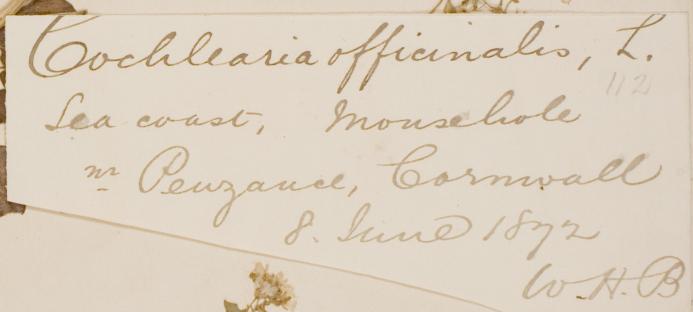 Cochlearia officinalis, L.
112
Sea coast, Mousehole
nr Penzance, Cornwall
8. June 1872
W.H.B